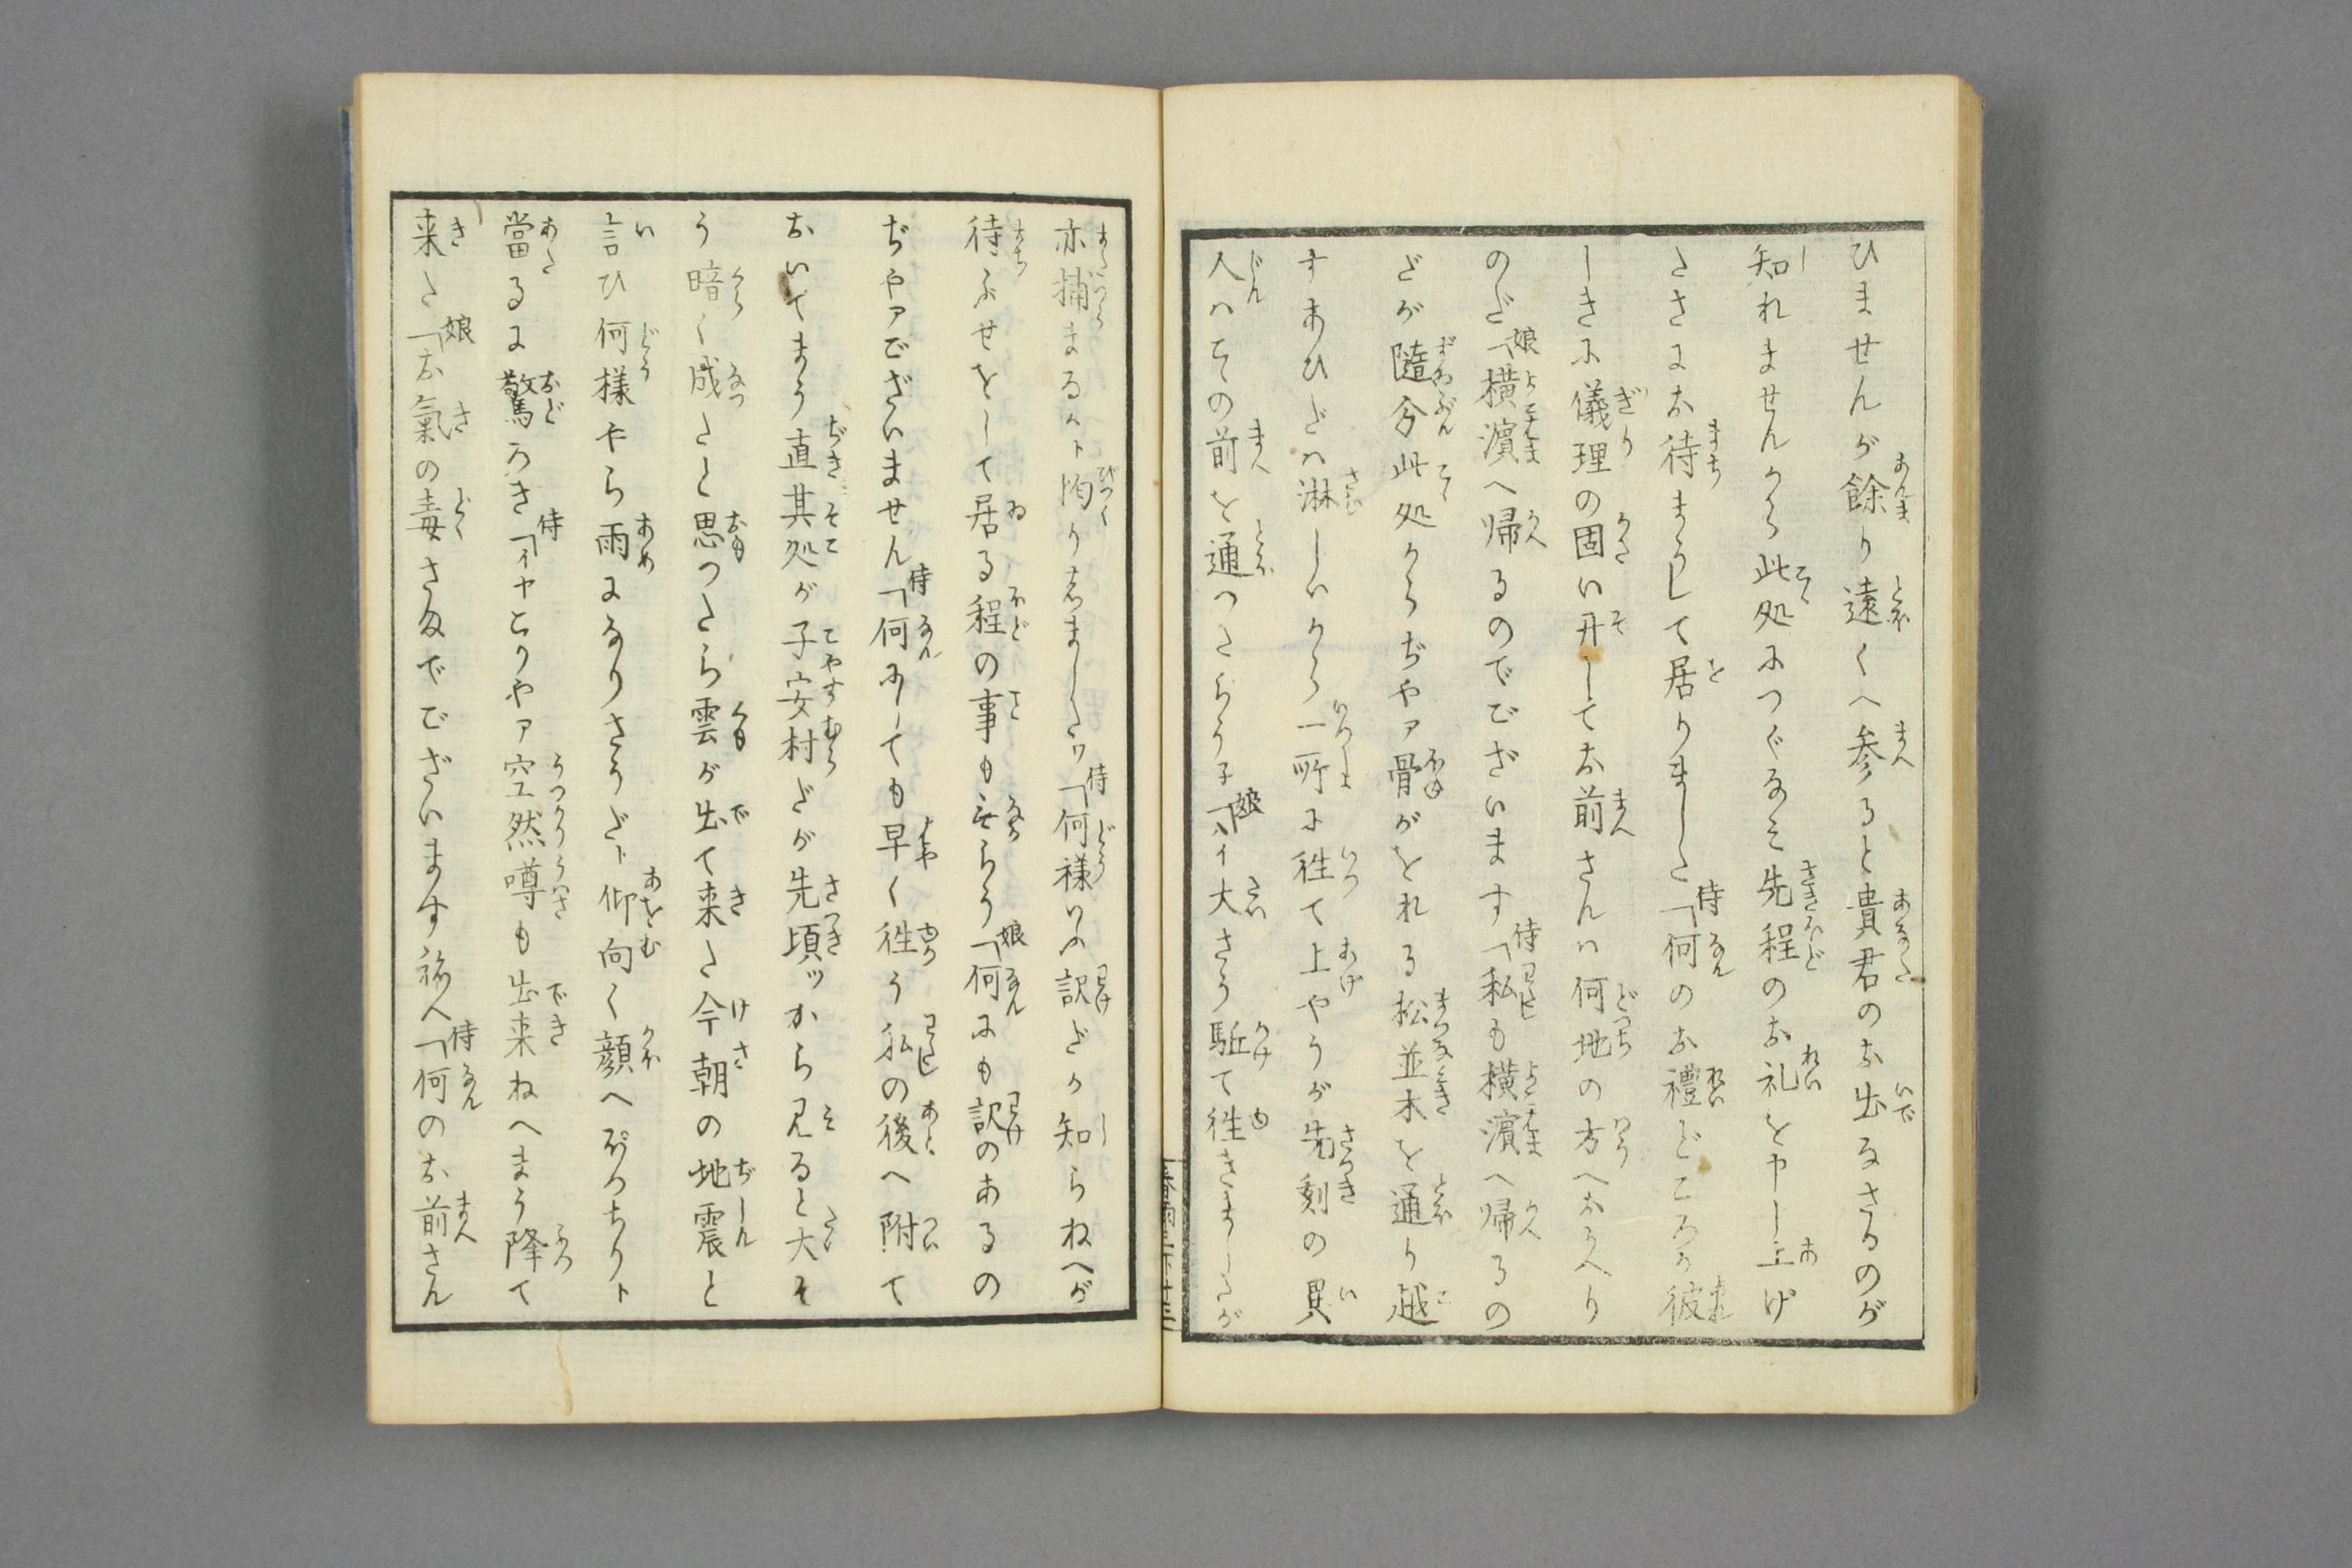 ひませんが餘り遠くへ参ると貴君のお出なさるのが
知れませんから此処につぐなみ先程のお礼を申し上げ
たさにお待まうして居りました侍「何のお禮どころか彼
しきに儀理の固い丹して お前さんハ何地の方へおかへり
のだ娘「横濱へ帰るのでございます侍「私も横濱へ帰るの
だが隨分此処からぢやア骨がをれる松並木を通り越
すあひだハ淋しいから一所に往て上やうが先刻の異
人ハその前を通つたらう子娘「ハイ大さう駈て往きましたが
亦捕まるかト恟りしましたワ侍「何様いふ訳だか知らねへが
待ぶせをして居る程の事も無らう娘「何にも訳のあるの
ぢやアございません侍「何にしても早く往う私の後へ附て
おいでまう直其処が子安村だが先頃ッから見ると大そ
う暗く成たと思つたら雲が出て来た今朝の地震と
言ひ何様やら雨になりさうだト仰向く顔へぽつちりト
當るに驚ろき侍「イヤこりやア空然噂も出来ねへまう降て
来た娘「お氣の毒さまでございます祢へ侍「何のお前さん